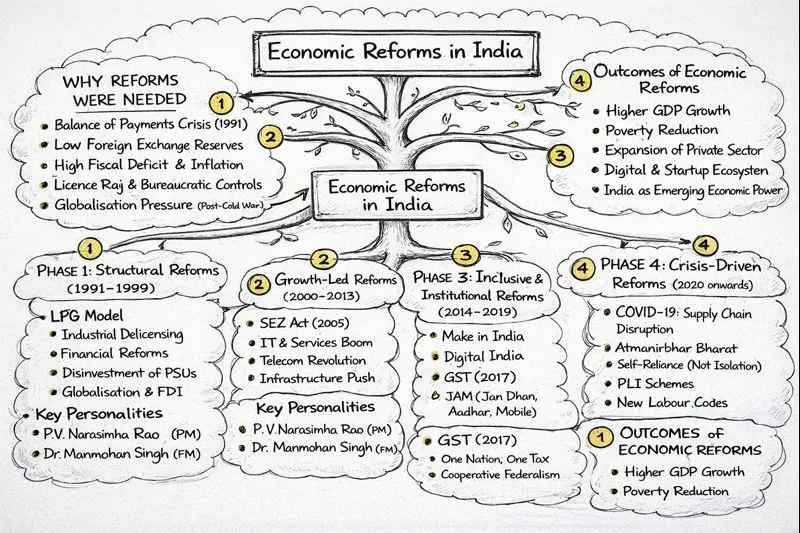 Economic Reforms in India
WHY REFORMS
WERE NEEDED
1
• Balance of Payments Crisis (1991)
2
• Low Foreign Exchange Reserves
• High Fiscal Deficit & Inflation
• Licence Raj & Bureaucratic Controls
• Globalisation Pressure (Post-Cold War)
4
Outcomes of Economic
Reforms
• Higher GDP Growth
• Poverty Reduction
3
• Expansion of Private Sector
• Digital & Startup Ecosysten
• India as Emerging Economic Power
Economic Reforms
in India
1
PHASE 1: Structural Reforms
(1991-1999)
• LPG Model
• Industrial Delicensing
• Financial Reforms
• Disinvestment of PSUs
• Globalisation & FDI
• Key Personalities
• P.V. Narasimha Rao (PM)
• Dr. Manmohan Singh (FM)
2
2 Growth-Led Reforms
(2000-2013)
• SEZ Act (2005)
• IT & Services Boom
• Telecom Revolution
• Infrastructure Push
Key Personalities
• P. V. Narasimha Rao (PM)
• Dr. Manmohan Singh (FM)
3
PHASE 3: Inclusive &
Institutional Reforms
(2014-2019)
• Make in India
• Digital India
• GST (2017)
• JAM (Jan Dhan,
Aadhar, Mobile)
• GST (2017)
• One Nation, One Tax
• Cooperative Federalism
4
4 PHASE 4: Crisis-Driven
Reforms (2020 onwards)
• COVID-19: Supply Chain
Disruption
• Atmanirbhar Bharat
• Self-Reliance (Not Isolation)
• PLI Schemes
• New Labour Codes
1 OUTCOMES of
ECONOMIC REFORMS
• Higher GDP Growth
• Poverty Reduction